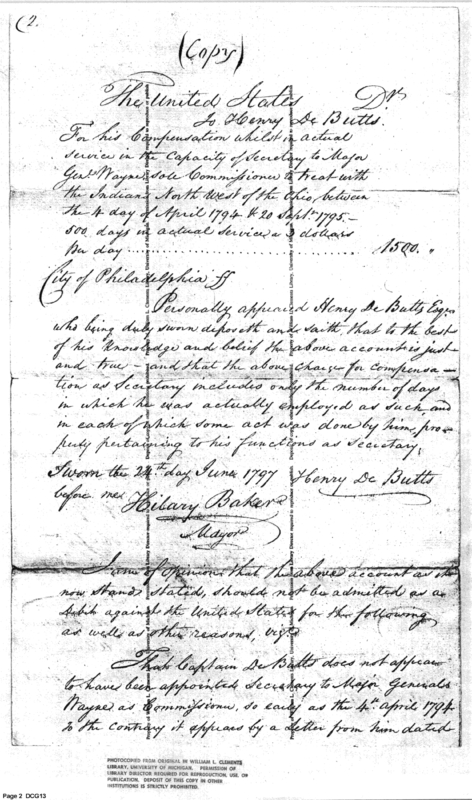 (2.
(Copy)
The United States Dr.
To Henry De Butts.
For his Compensation whilst in actual
service in the Capacity of Secretary to Major
Genl. Wayne, sole Commissioner to treat with
the Indians North West of the Ohio, between
the 4 day of April 1794 & 20 Septr. 1795.—
500 days in actual service a 3 dollars
Per day .......... 1500. "
City of Philadelphia ss
Personally appeared Henry De Butts Esqr.
who being duly sworn deposeth and saith that to the best
of his Knowledge and belief the above account is just
and true — and that the above Charge for compensa-
tion as Secretary includes only the number of days
in which he was actually employed as such, and
in each of which some act was done by him, pro-
perly pertaining to his functions as Secretary;
Sworn the 24th. day June 1797 Henry De Butts
before me
Hilary Baker
Mayor
I am of opinion that the above account as it
now stands stated, should not be admitted as a
debit against the United States for the following
as well as other reasons, vizt.
That Captain De Butts does not appear
to have been appointed Secretary to Major General
Wayne as Commissioner, so early as the 4th. April 1794
to the contrary it appears by a Letter from him dated
PHOTOCOPIED FROM ORIGINAL IN WILLIAM L. CLEMENTS
LIBRARY, UNIVERSITY OF MICHIGAN. PERMISSION OF
LIBRARY DIRECTOR REQUIRED FOR REPRODUCTION, USE, OR
PUBLICATION. DEPOSIT OF THIS COPY IN OTHER
INSTITUTIONS IS STRICTLY PROHIBITED.
Page 2 DCG13